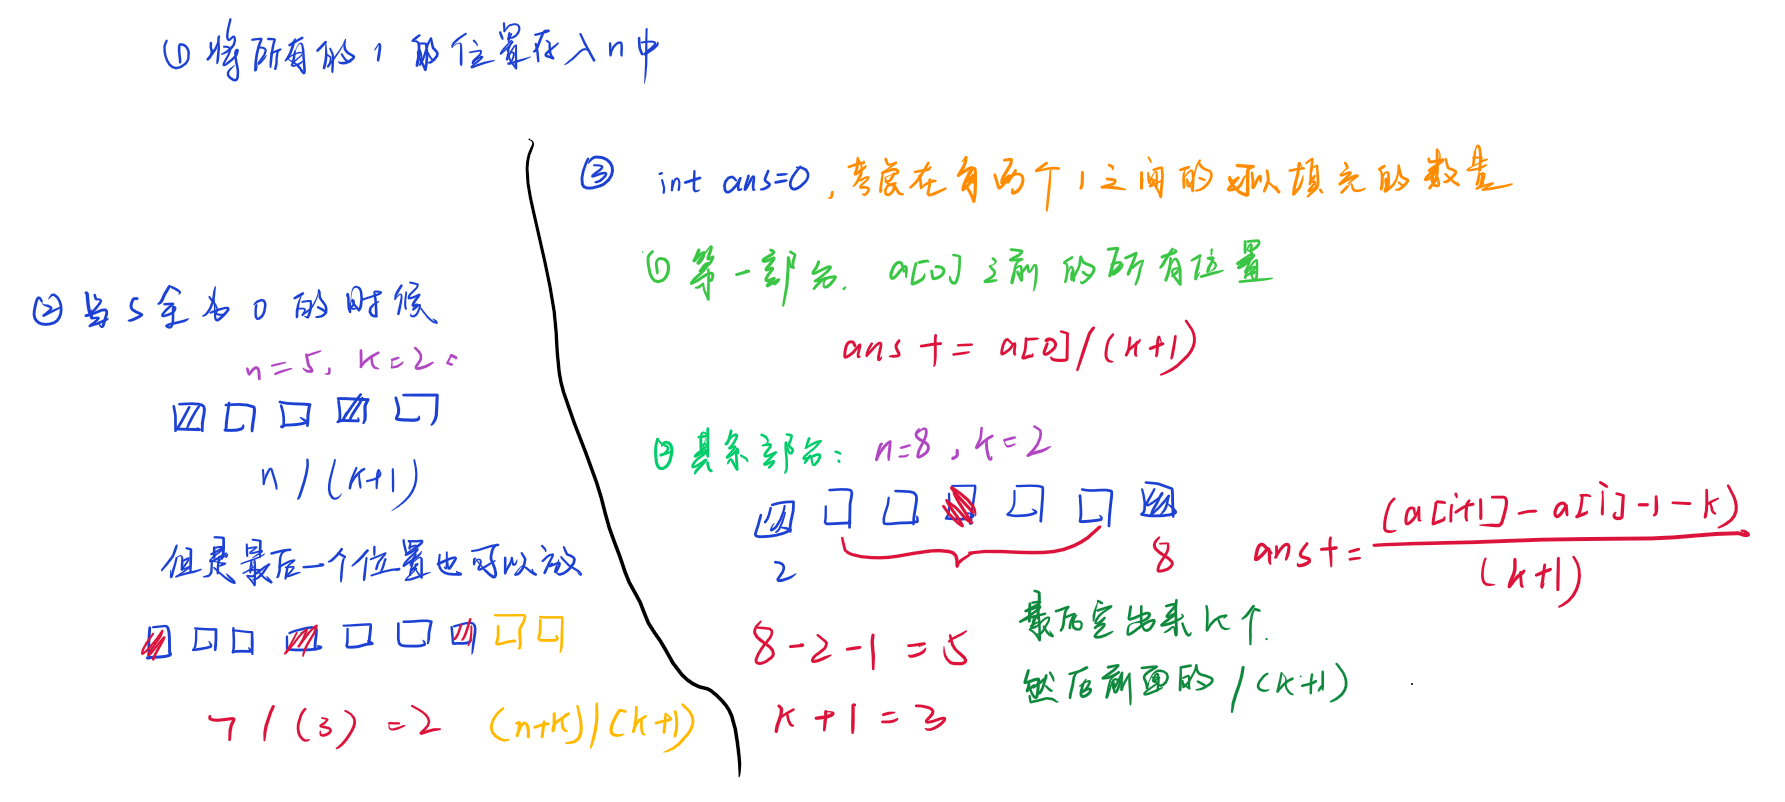 ① 将所有的 1 的位置存入 n 中
② 当 S 全为 0 的时候
n=5, k=2。
n / (k+1)
但是最后一个位置也可以放
7 / (3) = 2 (n+k)/(k+1)
③ int ans=0, 考虑在有两个 1 之间的可以填充的数量
① 第一部分. a[0] 之前的所有位置
ans += a[0] / (k+1)
② 其余部分: n=8, k=2
2 8
ans += (a[i+1] - a[i] - 1 - k) / (k+1)
8-2-1 = 5
k+1 = 3
最后空出来 k 个.
然后前面的 / (k+1)